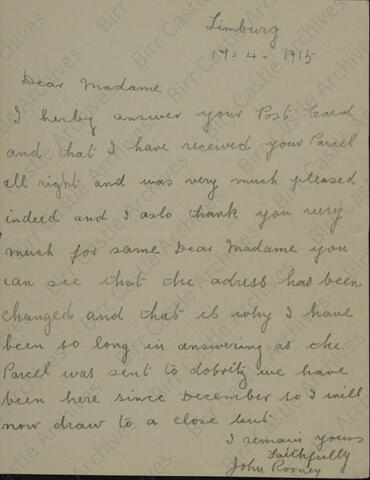 Limburg
19-4-1915
Dear Madame
I herby answer your Post Card
and that I have received your Parcel
all right and was very much pleased
indeed and I aslo thank you very
much for same Dear Madame you
can see that the adress has been
changed and that is why I have
been so long in answering as the
Parcel was sent to dobritz we have
been here since December so I will
now draw to a close but
I remain yours
Faithfully
John Rooney
Birr Castle Archives